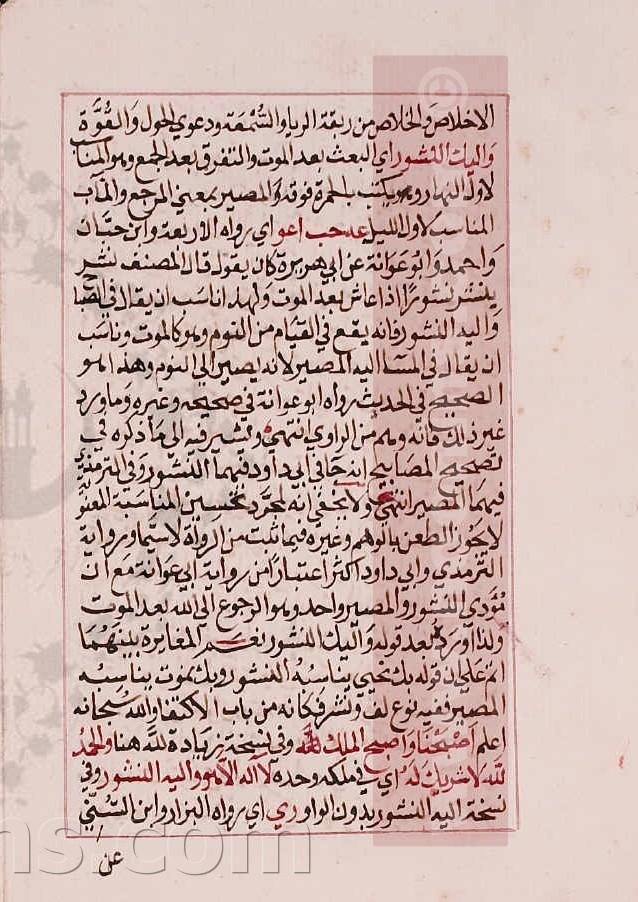 الاخلاص والخلاص من ربقة الريا والسُّمْعَة ودعوي الحول وَالقُوَّة
وَاليك النشور اي البعث بعد الموت والتفرق بعد الجمع وهو المناسب
لاول النهار ويكتب بالحمرة فوقه وَالمصير بمعني المرجع والمآب
المناسب لاول الليل عه حب اعو اي رواه الاربعة وابن حبّان
وَاحمد وَابُوعَوَانَة عن ابي هريرة كان يقول قال المصنف نشر
ينشر نشورًا اذا عاش بعد الموت ولهذا ناسب ان يقال في الصباح
وَاليه النشور فانه يقع في القيام من النوم وهو كالموت وناسَب
ان يقال في المسآ اليه المصير لانه يصير الي النوم وهذا هو
الصحيح في الحديث رواه ابو عوانة في صحيحه وغيره وما ورد
غير ذلك فانه وهم من الراوي انتهي ويشير فيه الي ما ذكره في
تصحيح المصابيح انه جا في ابي داود فيهما النشور وَفي الترمذي
فيهما المصير انتهي ولا يخفي انه لمجرّد تحسين المناسبة المعنوية
لا يجوز الطعن بالوهم وغيره فيما ثبت من الرواة لا سيّما ورواية
الترمذي وابي داود اكثر اعتبارًا من رواية ابي عوانة مَع ان
مُؤَدي النشور والمصير واحد وهو الرجوع الي الله بعد الموت
ولذا اورد بعد قوله وَاليك النشور نعم المغايرة بينهُمَا
اتم علي ان قوله بك نحيي يناسبُه النشور وبك نموت يناسبه
المصير ففيه نوع لف ونشر فكانه من باب الاكتفا وَالله سُبحانه
اعلم اَصْبَحْنَا وَاَصبح الملك لله وفي نسخة بزيادة لله هنا والحمدُ
لله لا شريك لَه اي في ملكه وحده لا آله الا هو واليه النشور وفي
نسخة اليه النشور بدون الواو ري اي رواه البزار وابن السُّنِّي
عن
ns.com